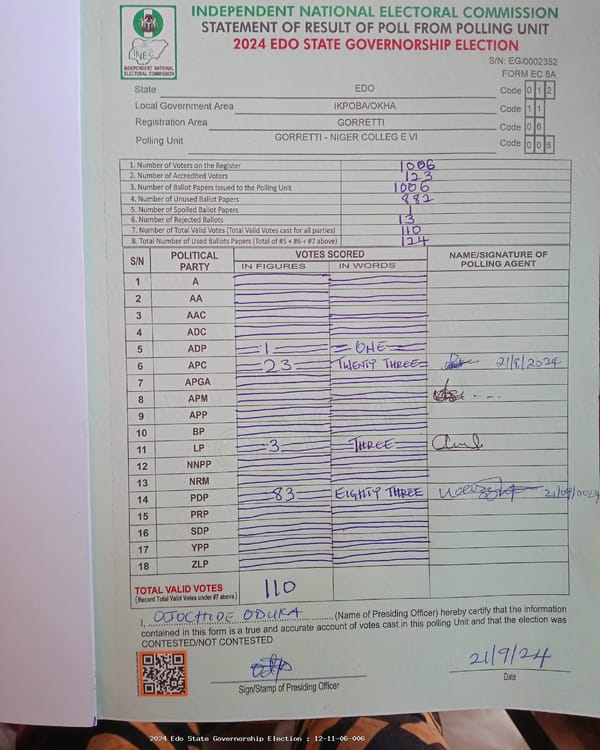 INDEPENDENT NATIONAL ELECTORAL COMMISSION
STATEMENT OF RESULT OF POLL FROM POLLING UNIT
2024 EDO STATE GOVERNORSHIP ELECTION
INEC
INDEPENDENT NATIONAL
ELECTORAL COMMISSION
S/N: EG/0002352
FORM EC 8A
State EDO Code 0 1 2
Local Government Area IKPOBA/OKHA Code 1 1
Registration Area GORRETTI Code 0 6
Polling Unit GORRETTI - NIGER COLLEG E VI Code 0 0 6
1. Number of Voters on the Register 1006
2. Number of Accredited Voters 123
3. Number of Ballot Papers Issued to the Polling Unit 1006
4. Number of Unused Ballot Papers 882
5. Number of Spoiled Ballot Papers 1
6. Number of Rejected Ballots 13
7. Number of Total Valid Votes (Total Valid Votes cast for all parties) 110
8. Total Number of Used Ballots Papers (Total of #5 + #6 + #7 above) 124
S/N POLITICAL PARTY VOTES SCORED NAME/SIGNATURE OF POLLING AGENT
IN FIGURES IN WORDS
1 A
2 AA
3 AAC
4 ADC
5 ADP 1 ONE
6 APC 23 TWENTY THREE 21/9/2024
7 APGA
8 APM
9 APP
10 BP
11 LP 3 THREE
12 NNPP
13 NRM
14 PDP 83 EIGHTY THREE
15 PRP
16 SDP
17 YPP
18 ZLP
TOTAL VALID VOTES 110
(Record Total Valid Votes under #7 above)
I, OJOCHIDE ODUKA (Name of Presiding Officer) hereby certify that the information
contained in this form is a true and accurate account of votes cast in this polling Unit and that the election was
CONTESTED/NOT CONTESTED
21/9/24
Sign/Stamp of Presiding Officer Date
2024 Edo State Governorship Election : 12-11-06-006